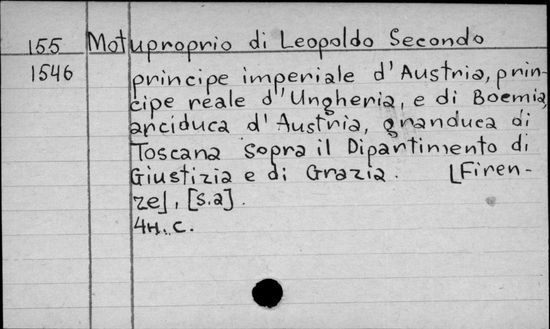 155 Motuproprio di Leopoldo Secondo
1546 principe imperiale d'Austria, prin-
cipe reale d'Ungheria, e di Boemia,
arciduca d'Austria, granduca di
Toscana sopra il Dipartimento di
Giustizia e di Grazia. [Firen-
ze], [s.a].
4H. c.